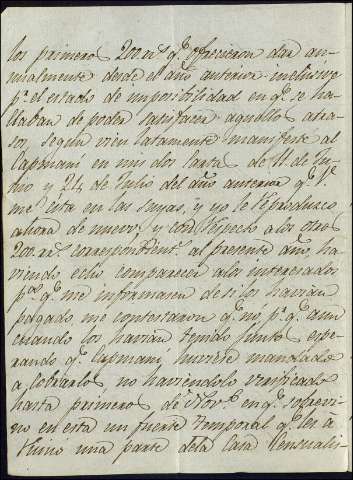 los primeros 200 r.s q.e ofrecieron dar an-
nualmente desde el año anterior inclusive
p.r el estado de imposibilidad en q.e se ha-
llaban de poder satisfacer aquellos atra-
sos, segun bien latamente manifesté al
Capmani en mis dos cartas de 11 de Ju-
nio y 24 de Julio del año anterior q.e V.
me cita en las suyas, y yo le reproduzco
ahora de nuevo, y con respecto a los otros
200 r.s correspond.tes al presente año, ha-
viendo echo comparecer a los interesados
p.a q.e me informasen de si los havian
pagado, me contestaron q.e no, p.r q.e aun
cuando los havian tenido juntos espe-
rando q.e Capmany huviere mandado
a cobrarlos, no haviendolo verificado
hasta primeros de Nov.e en q.e sobrevi-
no en esta un fuerte temporal q.e les a-
rruinó una parte dela Casa Censualis-